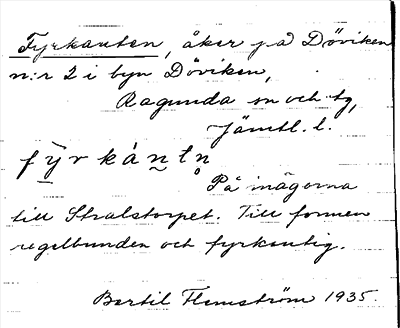 Fyrkanten, åker på Döviken
n:r 2 i byn Döviken,
Ragunda sn och tg,
Jämtl. l.
fỳ̠rkàn̬tn̥
På inägorna
till Stralstorpet. Till formen
regelbunden och fyrkantig.
Bertil Flemström 1935.